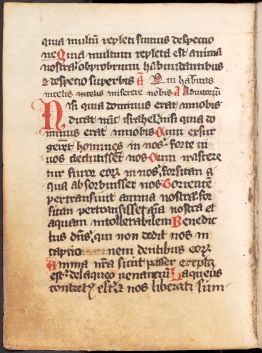 quia multū repleti sumus despectio
ne Quia multum repleta est anima
nostra obprobrium habundantibus
et despectio superbis A Qui habitas
in celis miserere nobis A Adiutoriū
Nisi quia dominus erat in nobis
dicat nūc israhel nisi quia do
minus erat in nobis Cum exsur
gerēt homines in nos forte ui
uos deglutissēt nos Cum irascere
tur furor eorū in nos forsitan a
qua absorbuisset nos Torrente
pertransiuit anima nostra for
sitan pertransisset aīa nostra et
aquam intollerabilem Benedic
tus dn̄s qui non dedit nos in
captio nem dentibus eorū
Anima nr̄a sicut passer erepta
est de laqueo uenanciū Laqueus
contritꝰ est et nos liberati sum